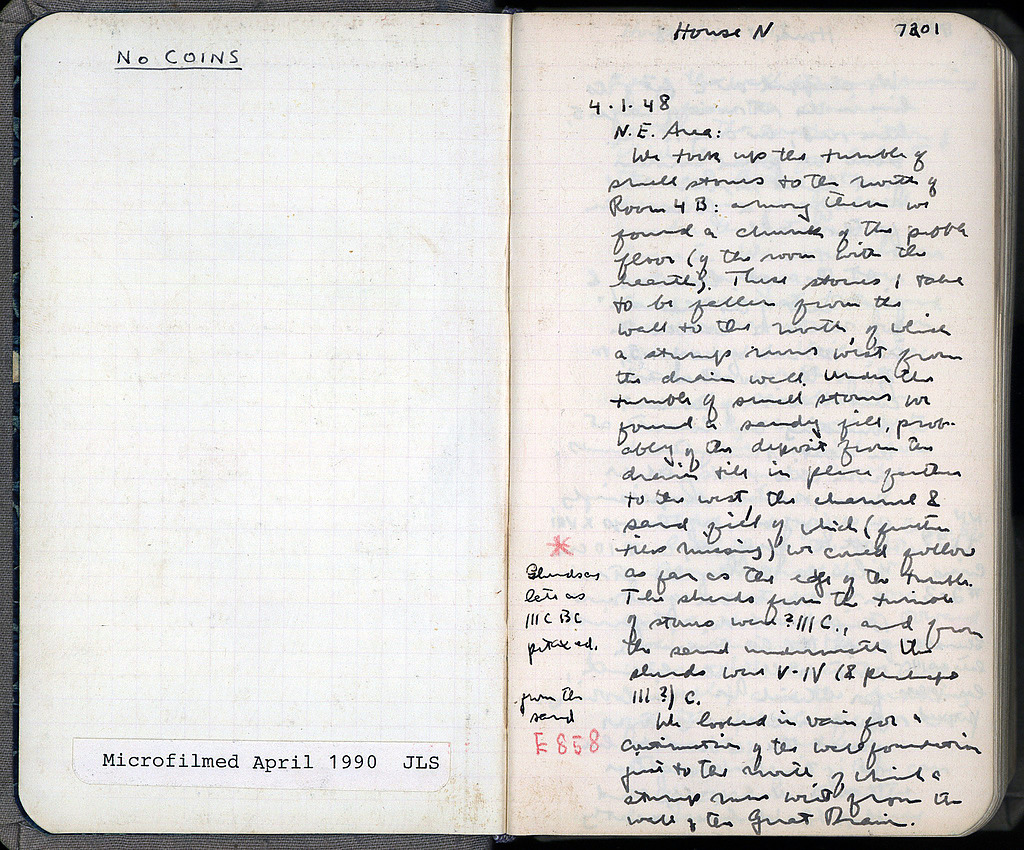 No COINS
Microfilmed April 1990 JLS
House N 7201
4.1.48
N.E. Area:
We took up the tumble of
small stones to the north of
Room 4 B: among them we
found a chunk of the pebble
floor (of the room with the
hearth). These stones I take
to be fallen from the
wall to the north, of which
a stump runs west from
the drain wall. Under the
tumble of small stones we
found a sandy fill, prob-
ably of the deposit from the
drain tile in place further
to the west, the channel &
sand fill of which (further
tiles missing) we could follow
as far as the edge of the tumble.
The sherds from the tumble
of stones were ? III C., and from
the sand underneath the
sherds were V-IV (& perhaps
III ?) C.
We looked in vain for a
continuation of the wall foundation
just to the north of which a
stump runs west from the
wall of the Great Drain.
*
Sherds as
late as
III C BC
from the
sand
E 858